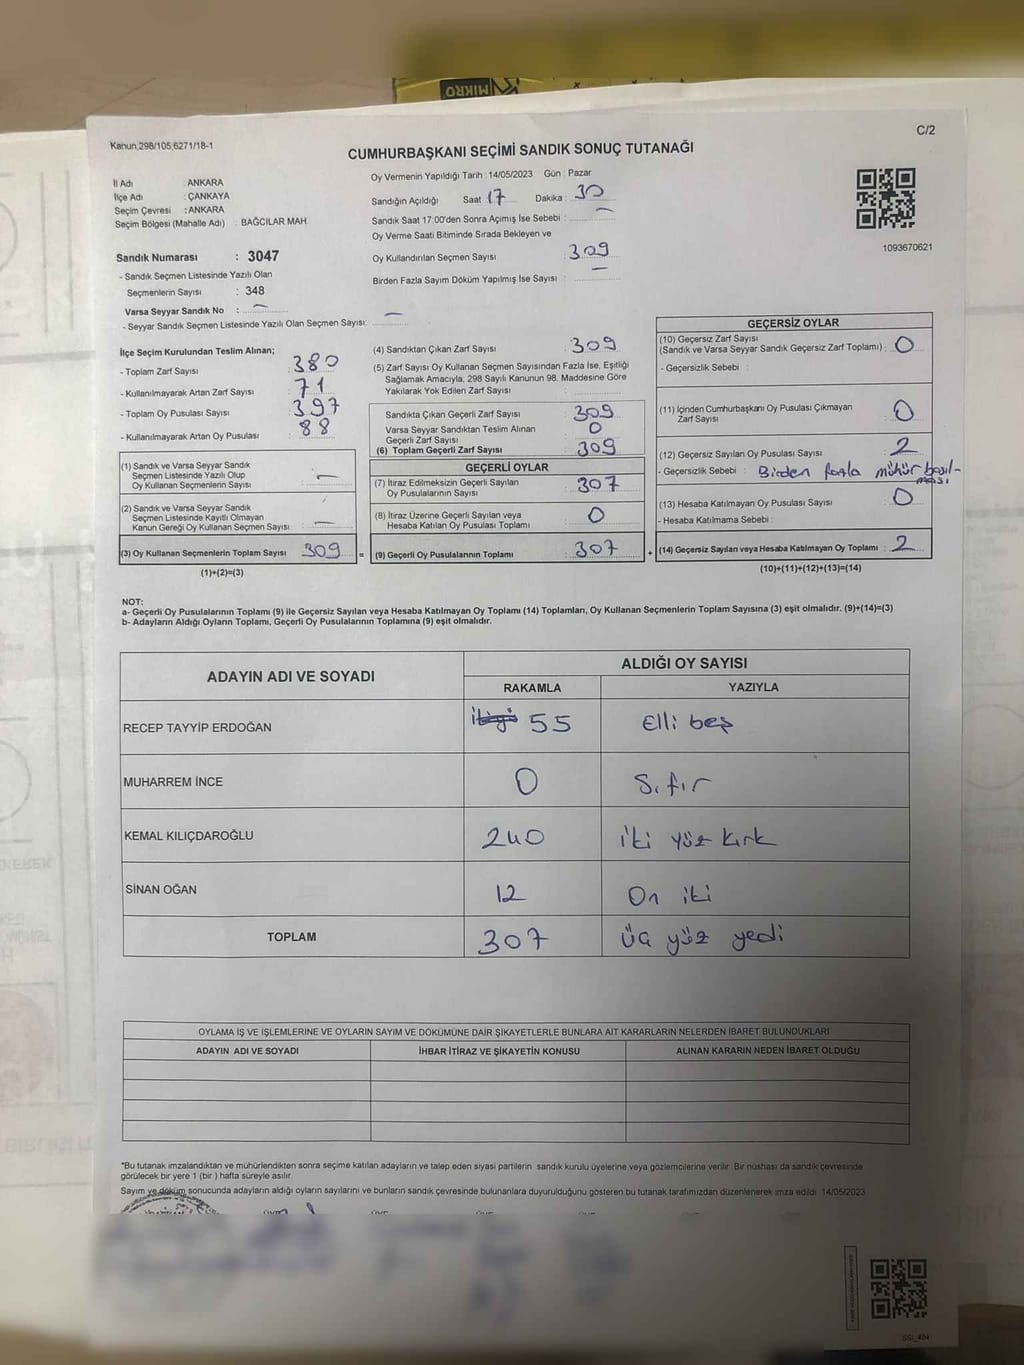 MIKRO
C/2
Kanun,298/105,6271/18-1
CUMHURBAŞKANI SEÇİMİ SANDIK SONUÇ TUTANAĞI
İl Adı : ANKARA
İlçe Adı : ÇANKAYA
Seçim Çevresi : ANKARA
Seçim Bölgesi (Mahalle Adı) : BAĞCILAR MAH
Oy Vermenin Yapıldığı Tarih : 14/05/2023 Gün : Pazar
Sandığın Açıldığı Saat 17 Dakika : 30
Sandık Saat 17:00'den Sonra Açımış İse Sebebi : —
Oy Verme Saati Bitiminde Sırada Bekleyen ve
Oy Kullandırılan Seçmen Sayısı : 309
Birden Fazla Sayım Döküm Yapılmış İse Sayısı : —
1093670621
Sandık Numarası : 3047
- Sandık Seçmen Listesinde Yazılı Olan
Seçmenlerin Sayısı : 348
Varsa Seyyar Sandık No : —
- Seyyar Sandık Seçmen Listesinde Yazılı Olan Seçmen Sayısı: —
İlçe Seçim Kurulundan Teslim Alınan;
- Toplam Zarf Sayısı : 380
- Kullanılmayarak Artan Zarf Sayısı : 71
- Toplam Oy Pusulası Sayısı : 397
- Kullanılmayarak Artan Oy Pusulası : 88
(1) Sandık ve Varsa Seyyar Sandık
Seçmen Listesinde Yazılı Olup
Oy Kullanan Seçmenlerin Sayısı : —
(2) Sandık ve Varsa Seyyar Sandık
Seçmen Listesinde Kayıtlı Olmayan
Kanun Gereği Oy Kullanan Seçmen Sayısı : —
(3) Oy Kullanan Seçmenlerin Toplam Sayısı : 309 =
(1)+(2)=(3)
(4) Sandıktan Çıkan Zarf Sayısı : 309
(5) Zarf Sayısı Oy Kullanan Seçmen Sayısından Fazla İse, Eşitliği
Sağlamak Amacıyla, 298 Sayılı Kanunun 98. Maddesine Göre
Yakılarak Yok Edilen Zarf Sayısı :
Sandıkta Çıkan Geçerli Zarf Sayısı : 309
Varsa Seyyar Sandıktan Teslim Alınan
Geçerli Zarf Sayısı : 0
(6) Toplam Geçerli Zarf Sayısı : 309
GEÇERLİ OYLAR
(7) İtiraz Edilmeksizin Geçerli Sayılan
Oy Pusulalarının Sayısı : 307
(8) İtiraz Üzerine Geçerli Sayılan veya
Hesaba Katılan Oy Pusulası Toplamı : 0
(9) Geçerli Oy Pusulalarının Toplamı : 307 +
GEÇERSİZ OYLAR
(10) Geçersiz Zarf Sayısı
(Sandık ve Varsa Seyyar Sandık Geçersiz Zarf Toplamı) : 0
- Geçersizlik Sebebi :
(11) İçinden Cumhurbaşkanı Oy Pusulası Çıkmayan
Zarf Sayısı : 0
(12) Geçersiz Sayılan Oy Pusulası Sayısı : 2
- Geçersizlik Sebebi : Birden fazla mühür basıl-
ması
(13) Hesaba Katılmayan Oy Pusulası Sayısı : 0
- Hesaba Katılmama Sebebi :
(14) Geçersiz Sayılan veya Hesaba Katılmayan Oy Toplamı : 2
(10)+(11)+(12)+(13)=(14)
NOT:
a- Geçerli Oy Pusulalarının Toplamı (9) ile Geçersiz Sayılan veya Hesaba Katılmayan Oy Toplamı (14) Toplamları, Oy Kullanan Seçmenlerin Toplam Sayısına (3) eşit olmalıdır. (9)+(14)=(3)
b- Adayların Aldığı Oyların Toplamı, Geçerli Oy Pusulalarının Toplamına (9) eşit olmalıdır.
ADAYIN ADI VE SOYADI ALDIĞI OY SAYISI
RAKAMLA YAZIYLA
RECEP TAYYİP ERDOĞAN 55 Elli beş
MUHARREM İNCE 0 Sıfır
KEMAL KILIÇDAROĞLU 240 iki yüz kırk
SİNAN OĞAN 12 On iki
TOPLAM 307 üç yüz yedi
OYLAMA İŞ VE İŞLEMLERİNE VE OYLARIN SAYIM VE DÖKÜMÜNE DAİR ŞİKAYETLERLE BUNLARA AİT KARARLARIN NELERDEN İBARET BULUNDUKLARI
ADAYIN ADI VE SOYADI İHBAR İTİRAZ VE ŞİKAYETİN KONUSU ALINAN KARARIN NEDEN İBARET OLDUĞU
*Bu tutanak imzalandıktan ve mühürlendikten sonra seçime katılan adayların ve talep eden siyasi partilerin sandık kurulu üyelerine veya gözlemcilerine verilir. Bir nüshası da sandık çevresinde
görülecek bir yere 1 (bir) hafta süreyle asılır.
Sayım ve döküm sonucunda adayların aldığı oyların sayılarını ve bunların sandık çevresinde bulunanlara duyurulduğunu gösteren bu tutanak tarafımızdan düzenlenerek imza edildi. 14/05/2023